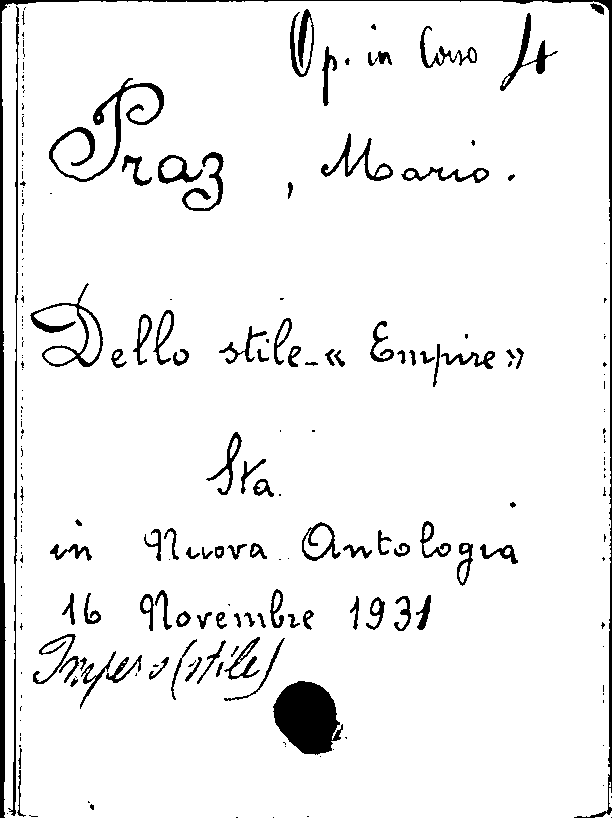 Op. in Corso 4
Praz, Mario.
Dello stile « Empire »
Sta
in Nuova Antologia
16 Novembre 1931
Impero (stile)